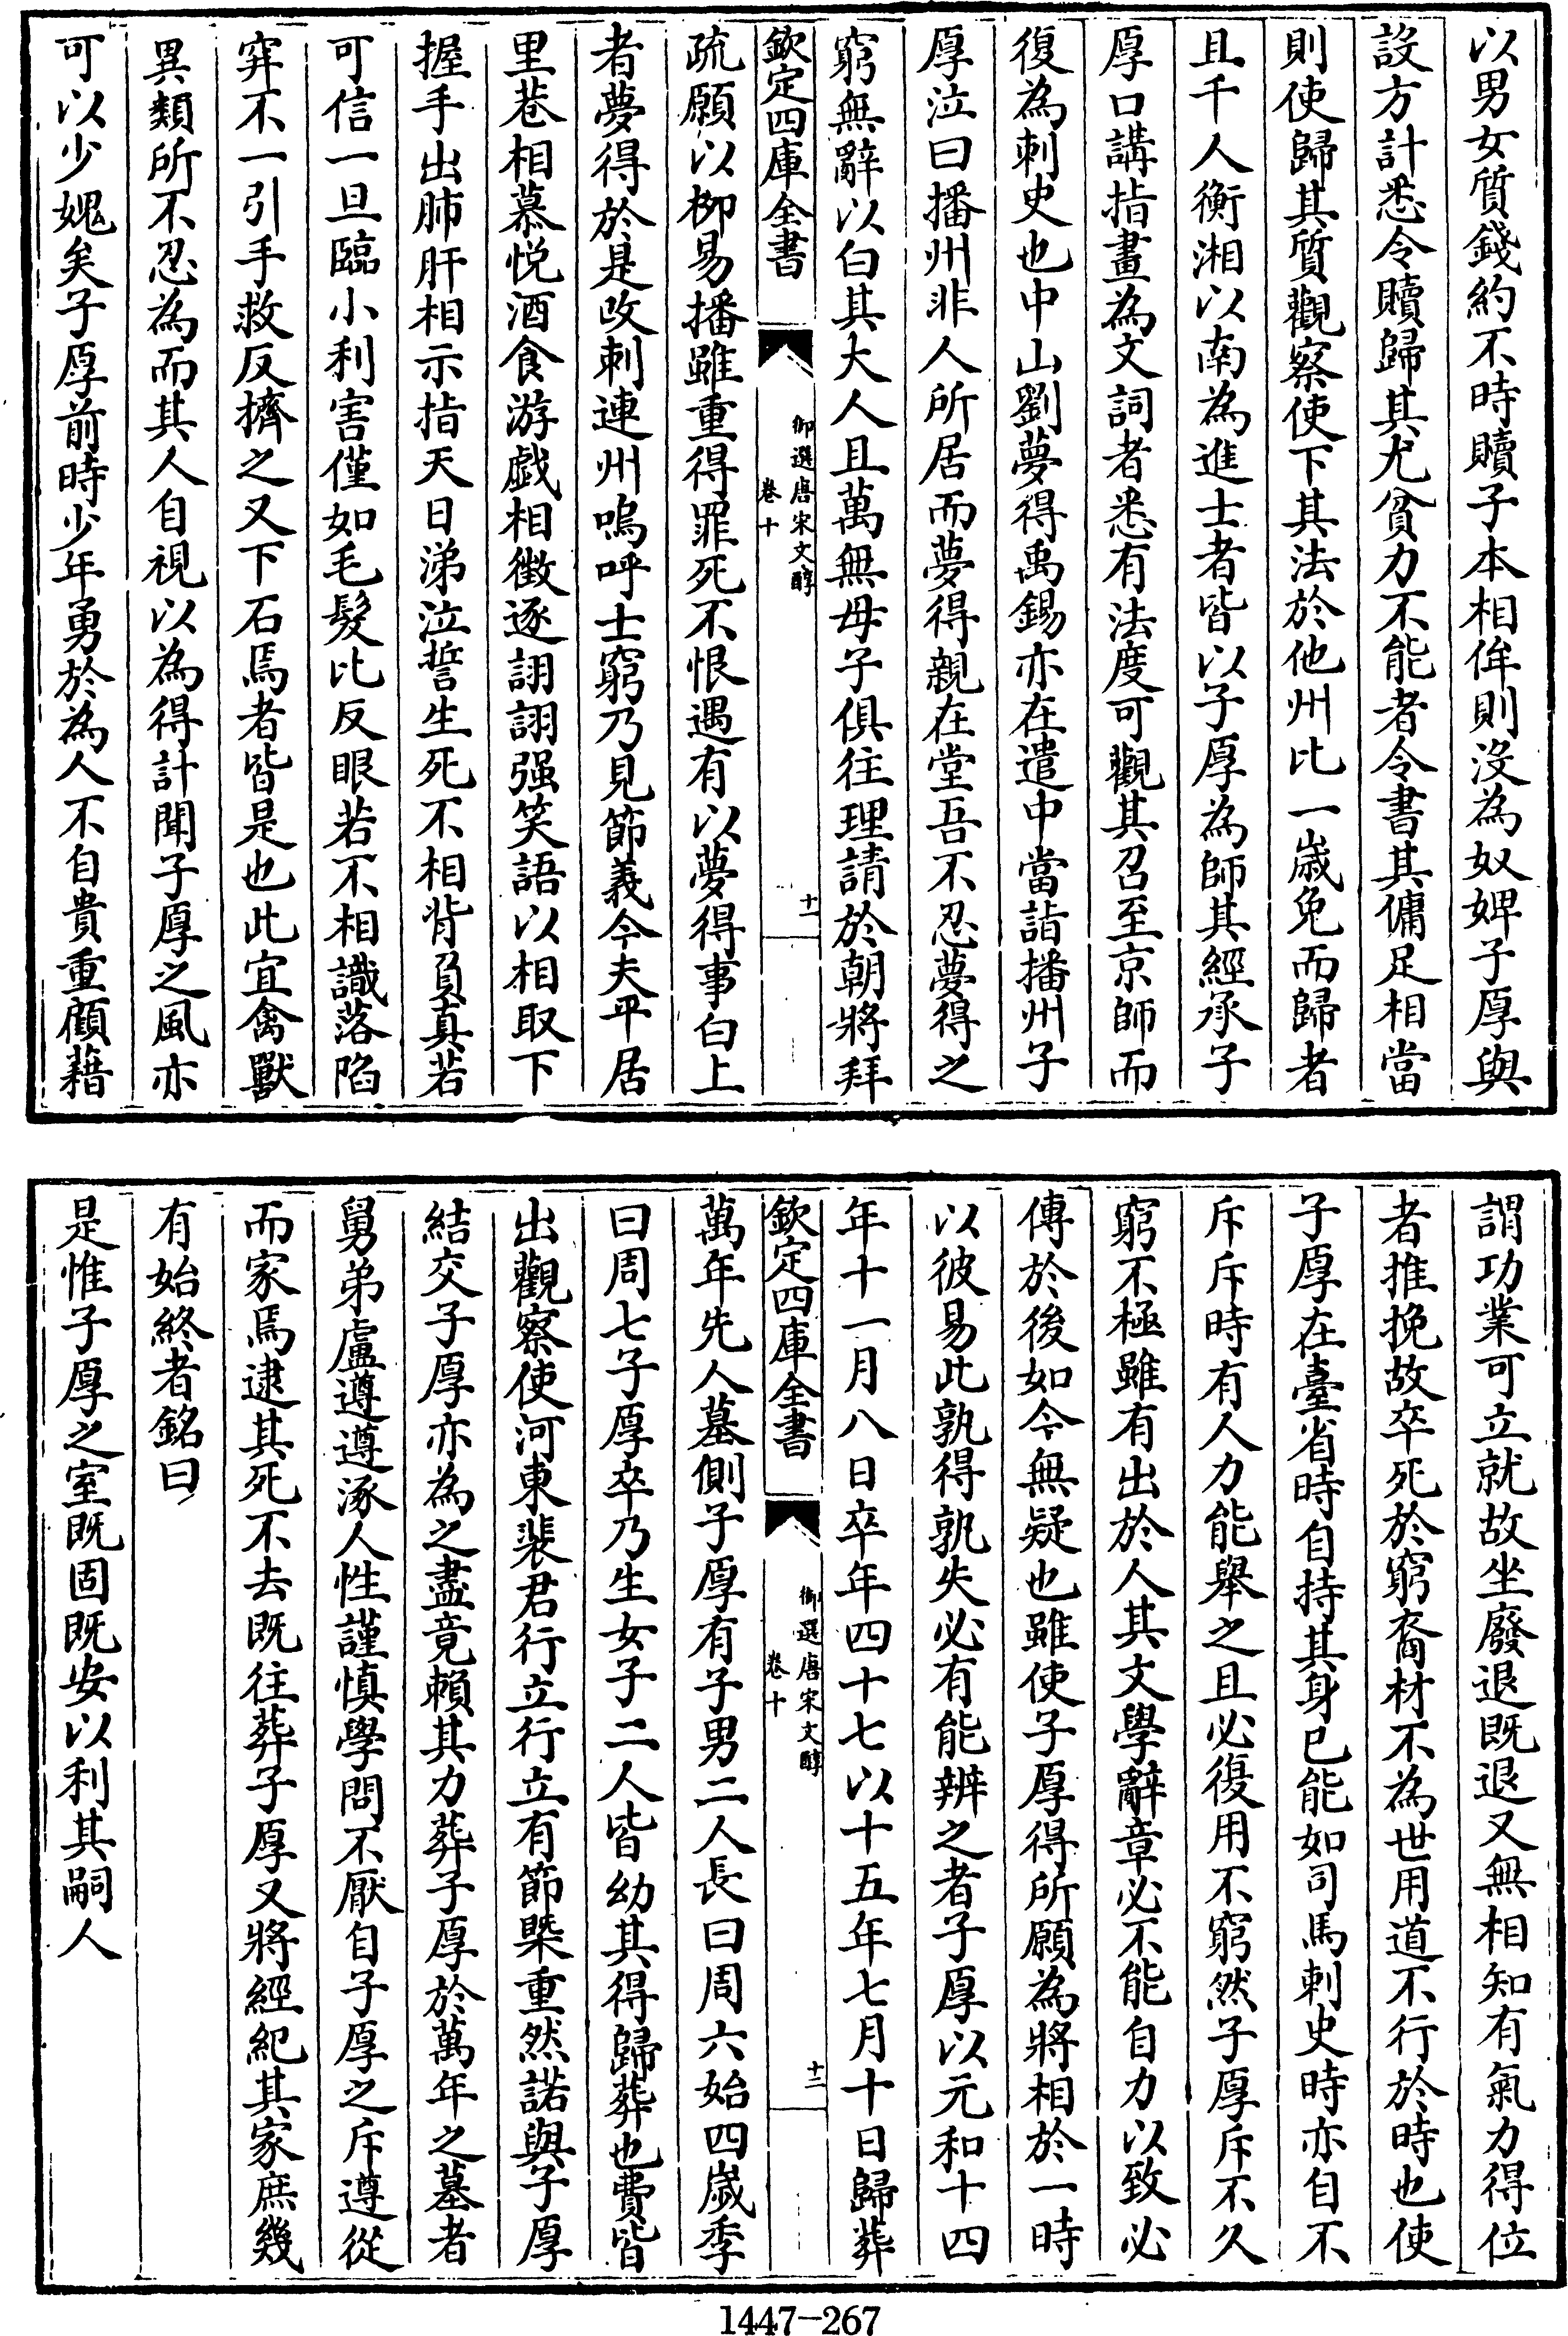 以男女質錢約不時贖子本相侔則没為奴婢子厚與
設方計悉令贖歸其尤貧力不能者令書其傭足相當
則使歸其質觀察使下其法於他州比一歲免而歸者
且千人衡湘以南為進士者皆以子厚為師其經承子
厚口講指畫為文詞者悉有法度可觀其召至京師而
復為刺史也中山劉夢得禹錫亦在遣中當詣播州子
厚泣曰播州非人所居而夢得親在堂吾不忍夢得之
窮無辭以白其大人且萬無母子俱往理請於朝將拜
欽定四庫全書
御選唐宋文醇
卷十
十一
疏願以柳易播雖重得罪死不恨遇有以夢得事白上
者夢得於是改刺連州嗚呼士窮乃見節義今夫平居
里巷相慕悅酒食游戲相徵逐詡詡强笑語以相取下
握手出肺肝相示指天日涕泣誓生死不相背負真若
可信一旦臨小利害僅如毛髮比反眼若不相識落陷
穽不一引手救反擠之又下石焉者皆是也此宜禽獸
異類所不忍為而其人自視以為得計聞子厚之風亦
可以少媿矣子厚前時少年勇於為人不自貴重顧藉
謂功業可立就故坐廢退既退又無相知有氣力得位
者推挽故卒死於窮裔材不為世用道不行於時也使
子厚在臺省時自持其身已能如司馬刺史時亦自不
斥斥時有人力能舉之且必復用不窮然子厚斥不久
窮不極雖有出於人其文學辭章必不能自力以致必
傳於後如今無疑也雖使子厚得所願為將相於一時
以彼易此孰得孰失必有能辨之者子厚以元和十四
年十一月八日卒年四十七以十五年七月十日歸葬
欽定四庫全書
御選唐宋文醇
卷十
十二
萬年先人墓側子厚有子男二人長曰周六始四歲季
曰周七子厚卒乃生女子二人皆幼其得歸葬也費皆
出觀察使河東裴君行立行立有節槩重然諾與子厚
結交子厚亦為之盡竟賴其力葬子厚於萬年之墓者
舅弟盧遵遵涿人性謹慎學問不厭自子厚之斥遵從
而家焉逮其死不去既往葬子厚又將經紀其家庶幾
有始終者銘曰
是惟子厚之室既固既安以利其嗣人
1447-267